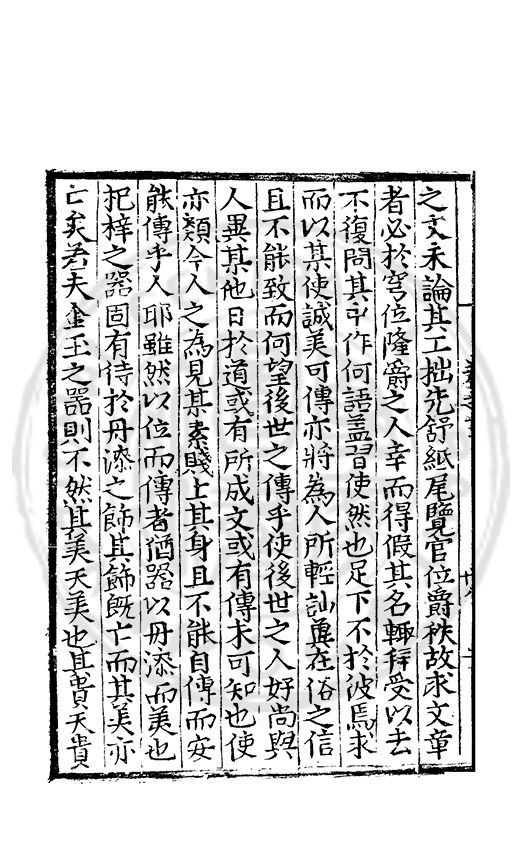 之文未論其工拙先舒紙尾覽官位爵秩故求文章
者必於穹位隆爵之人幸而得假其名輙拜受以去
不復問其中作何語蓋習使然也足下不於彼焉求
而以某使誠美可傳亦將為人所輕訕焉在俗之信
且不能致而何望後世之傳乎使後世之人好尚與
人異某他日於道或有所成文或有傳未可知也使
亦類今人之為見某素賤上其身且不能自傳而安
能傳乎人耶雖然以位而傳者猶器以丹漆而美也
杞梓之器固有待於丹漆之飾其飾旣亡而其美亦
亡矣若夫金玉之器則不然其美天美也其貴天貴